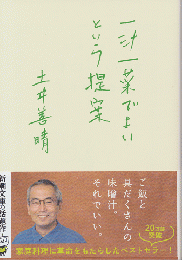 一汁一菜でよい
という提案
土井善晴
ご飯と
具だくさんの
味噌汁。
それでいい。
20万部
突破
家庭料理に革命をもたらしたベストセラー!